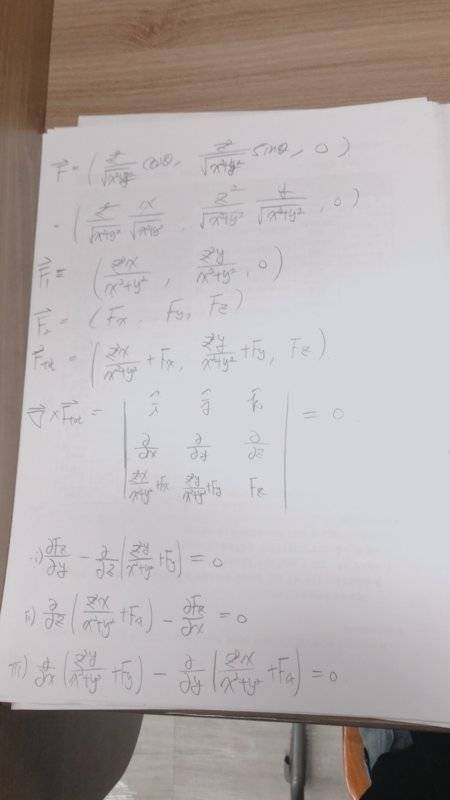 F⃗ = ( z²/√(x²+y²) cosθ, z²/√(x²+y²) sinθ, 0 )
= ( z²/√(x²+y²) x/√(x²+y²), z²/√(x²+y²) y/√(x²+y²), 0 )
F⃗₁ = ( z²x/(x²+y²), z²y/(x²+y²), 0 )
F⃗₂ = ( Fx, Fy, Fz )
F⃗tot = ( z²x/(x²+y²) + Fx, z²y/(x²+y²) + Fy, Fz )
∇⃗ × F⃗tot = | x̂ ŷ k̂ | = 0
| ∂/∂x ∂/∂y ∂/∂z |
| z²x/(x²+y²) + Fx z²y/(x²+y²) + Fy Fz |
i) ∂Fz/∂y − ∂/∂z ( z²y/(x²+y²) + Fy ) = 0
ii) ∂/∂z ( z²x/(x²+y²) + Fx ) − ∂Fz/∂x = 0
iii) ∂/∂x ( z²y/(x²+y²) + Fy ) − ∂/∂y ( z²x/(x²+y²) + Fx ) = 0